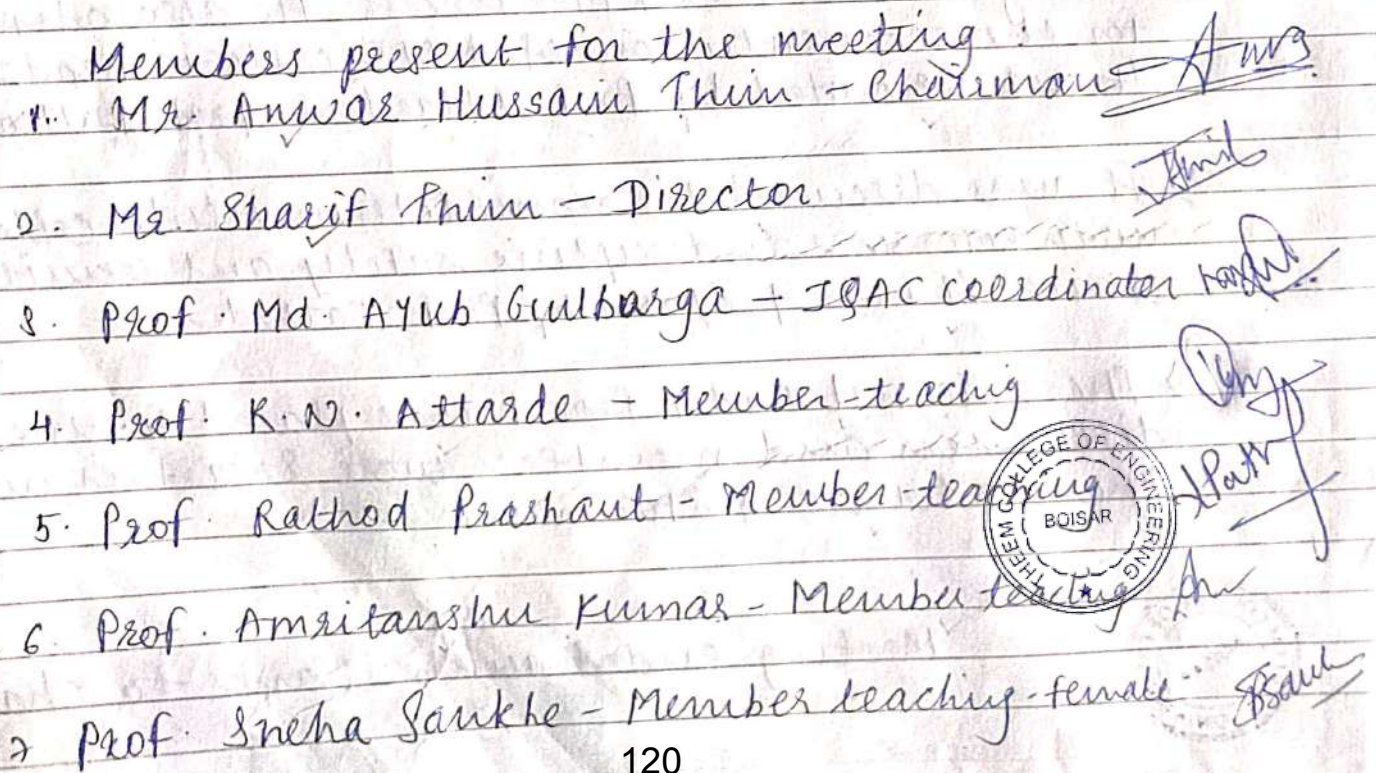 Members present for the meeting :
1. Mr. Anwar Hussain Thim - Chairman
2. Mr. Sharif Thim - Director
3. Prof. Md. AYub Gulbarga - IQAC coordinator
4. Prof. K.N. Attarde - Member-teachig
5. Prof. Rathod Prashant - Member-teaching
THEEM COLLEGE OF ENGINEERING
BOISAR
6. Prof. Amritanshu Kumar - Member teaching
7 Prof. Sneha Sankhe - Member teaching-female
120